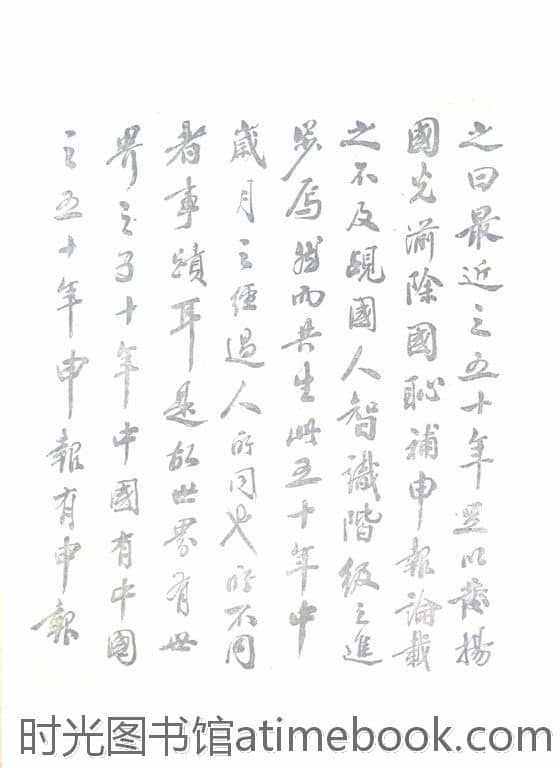 之曰最近之五十年豈以發揚
國光湔除國恥補申報論載
之不及覘國人智識階級之進
步焉然而共生此五十年中
歲月之經過人所同也所不同
者事蹟耳是故世界有世
界之五十年中國有中國
之五十年申報有申報
时光图书馆atimebook.com